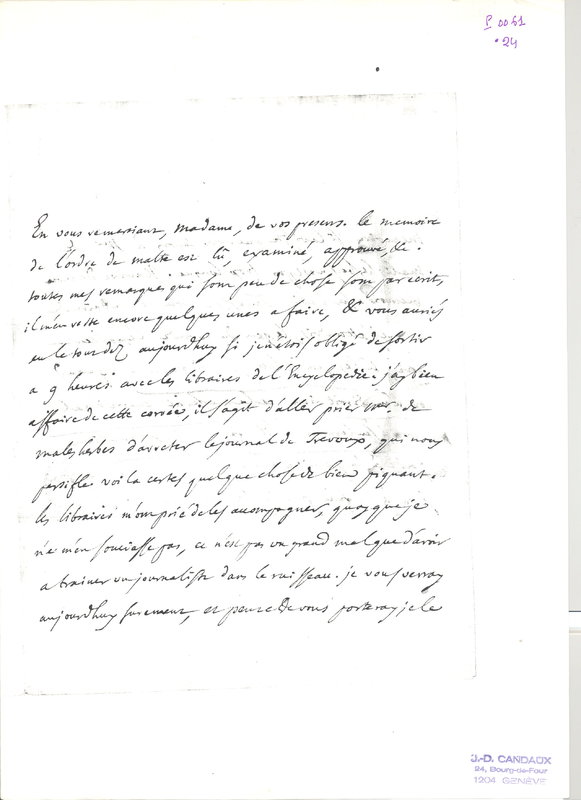 P 0061
24
En vous remerciant, madame, de vos presens. le memoire
de l'ordre de malte est lû, examiné, approuvé, &c.
toutes mes remarques qui sont peu de chose sont par écrit,
il m'en reste encore quelques unes a faire, & vous auriés
eu le tout dez aujourdhuy si je n'etois obligé de sortir
a 9 heures avec les libraires de l'Encyclopedie. j'ay bien
affaire de cette corvée, il s'agit d'aller prier mr. de
malesherbes d'arreter le journal de Trevoux, qui nous
persifle. voila certes quelque chose de bien piquant.
les libraires m'ont prié de les accompagner, quoy que je
ne m'en souciasse pas, ce n'est pas un grand mal que d'avoir
a trainer un journaliste dans le ruisseau. je vous verray
aujourdhuy surement, et peut vous porteray je le
J.-D. CANDAUX
24, Bourg-de-Four
1204 GENÈVE